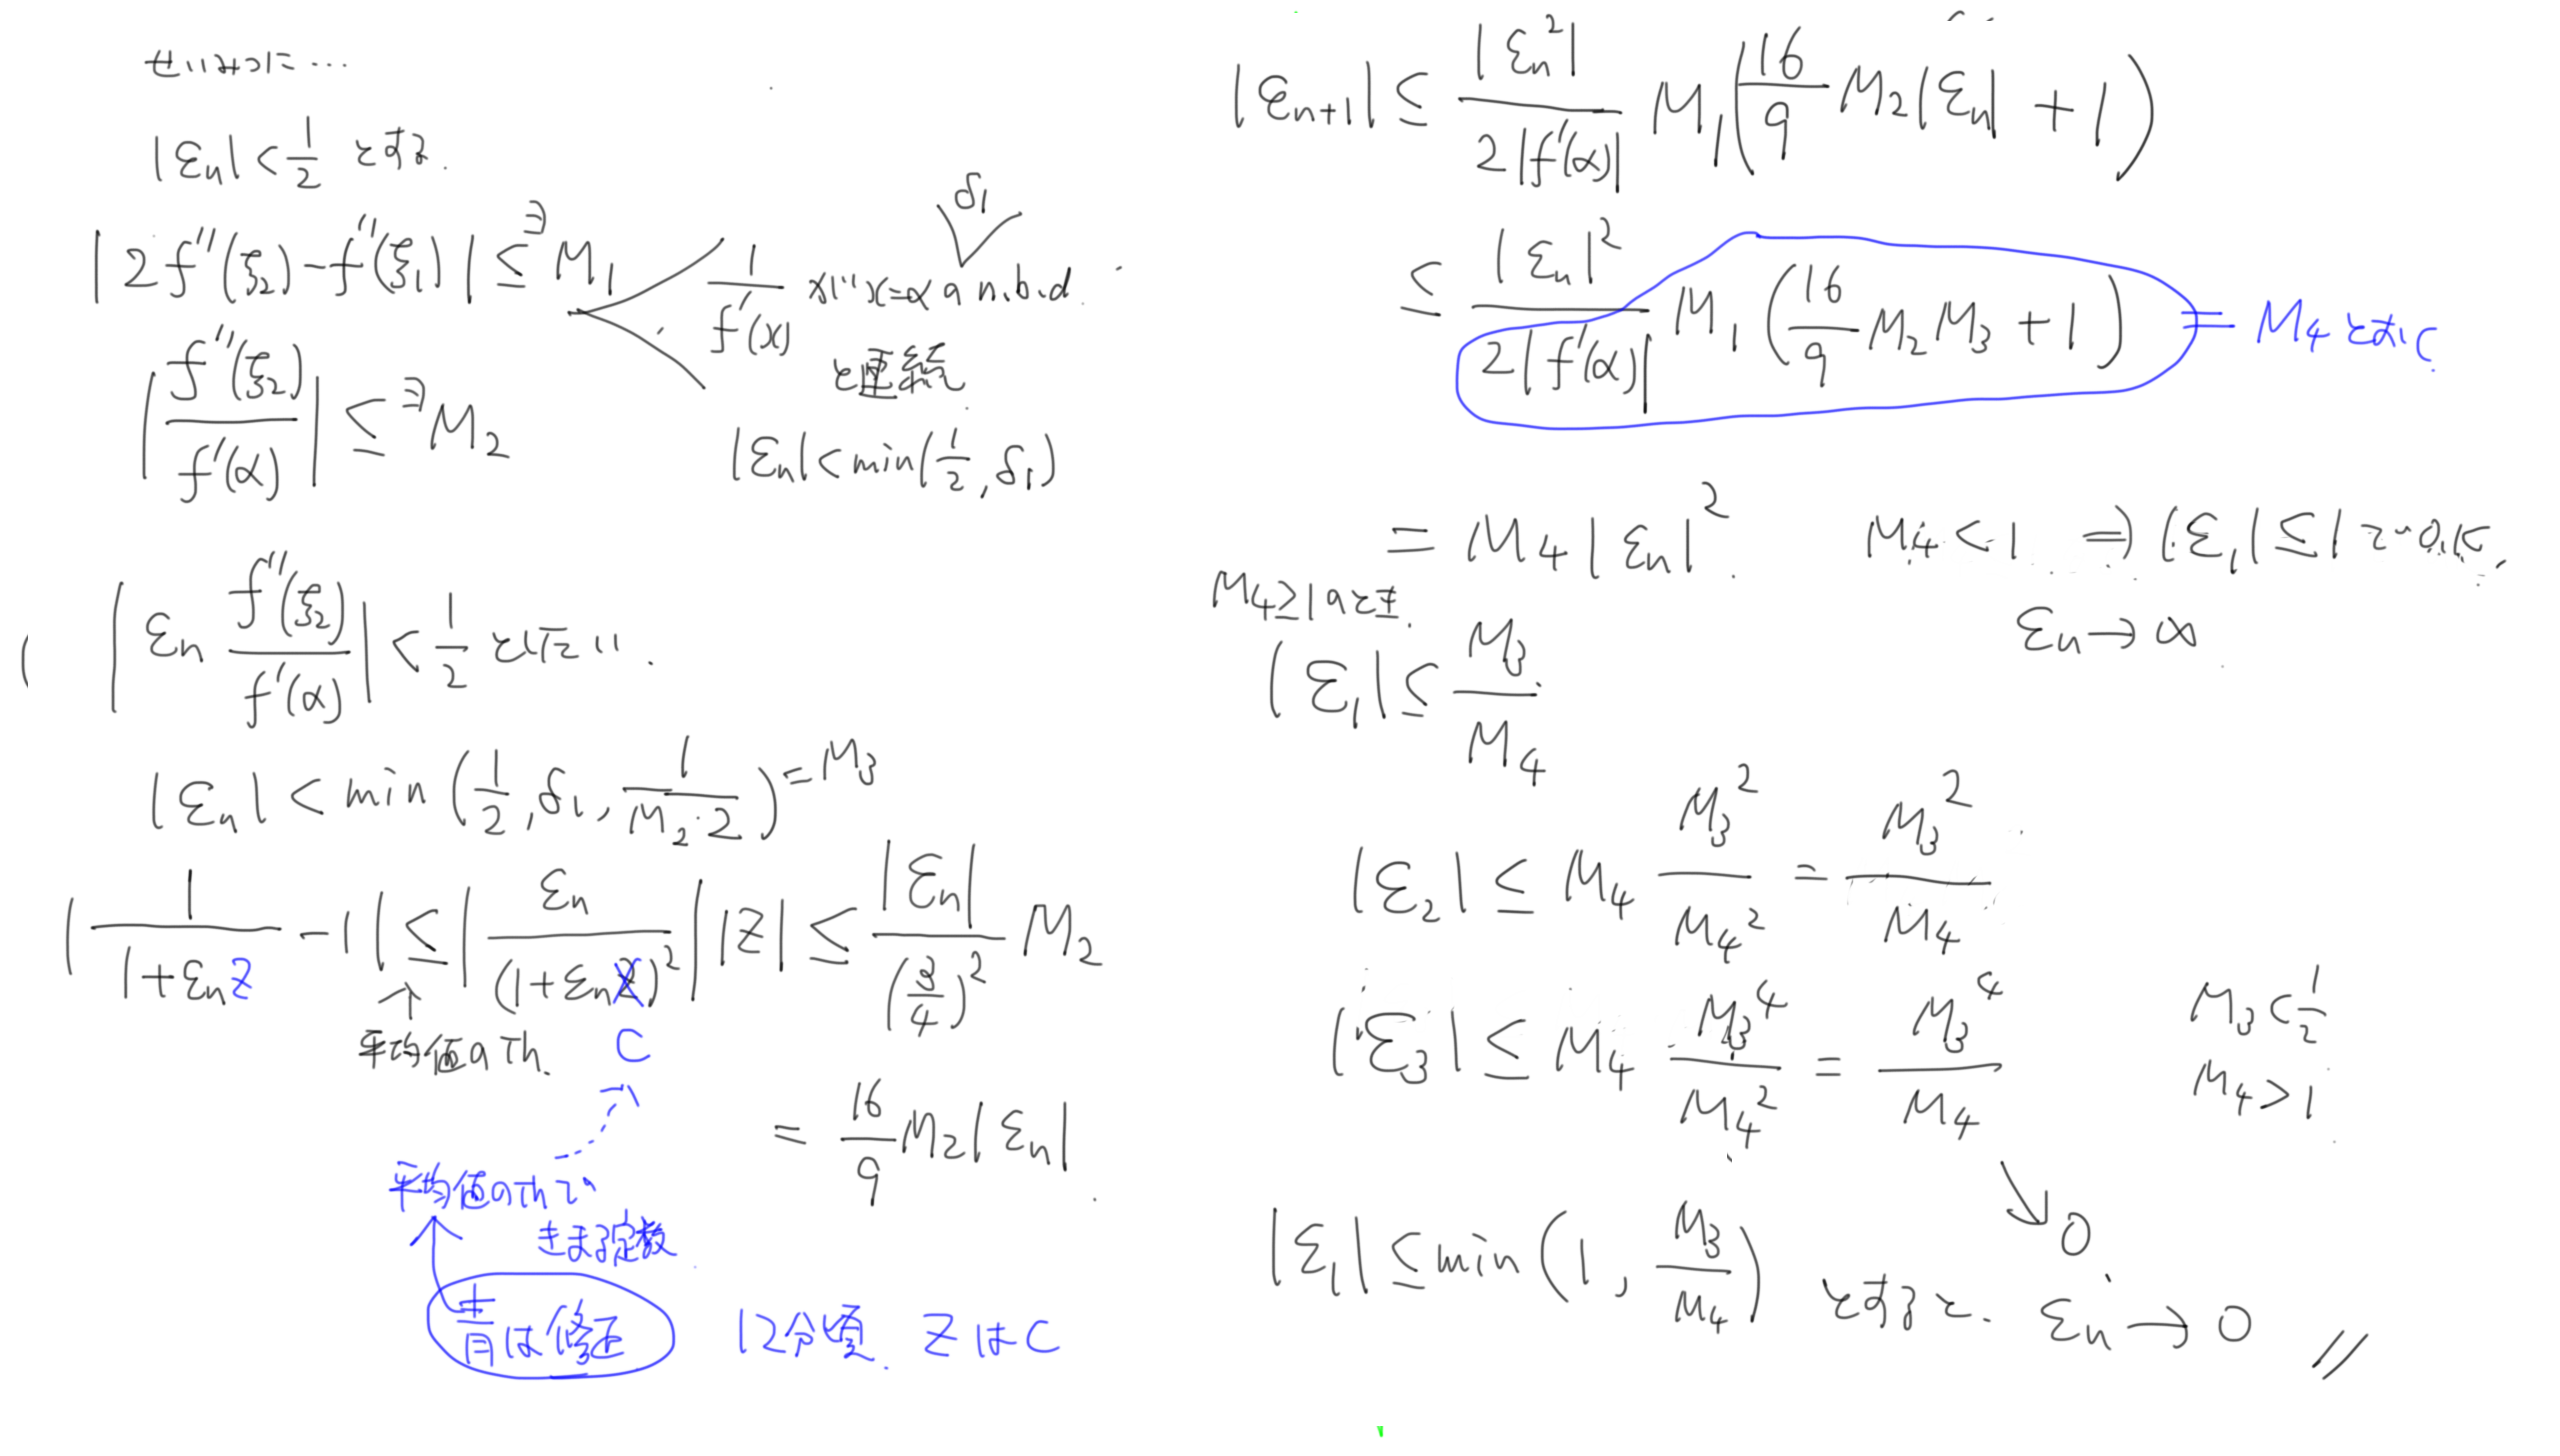 せいみつに…
|εn| < 1/2 とする.
|2f''(ξ2) - f''(ξ1)| ≤ ∃M1
δ1
1/f'(x) が x=α の n.b.d
と連続
|f''(ξ2)/f'(α)| ≤ ∃M2
|εn| < min(1/2, δ1)
|εn f''(ξ2)/f'(α)| < 1/2 としたい.
|εn| < min(1/2, δ1, 1/(M2・2)) = M3
|1/(1+εnz) - 1| ≤ |εn/(1+εnz)^2| |z| ≤ |εn|/(3/4)^2 M2
平均値のTh.
C
= 16/9 M2|εn|
平均値のThで
きまる定数
青は修正
12分頃. ZはC
|εn+1| ≤ |εn^2|/(2|f'(α)|) M1(16/9 M2|εn| + 1)
≤ |εn|^2/(2|f'(α)|) M1(16/9 M2M3 + 1) = M4とおく
= M4|εn|^2. M4<1 ⇒ |ε1| ≤ 1でOK.
εn → ∞
M4≥1のとき.
|ε1| ≤ M3/M4
|ε2| ≤ M4 M3^2/M4^2 = M3^2/M4
|ε3| ≤ M4 M3^4/M4^2 = M3^4/M4
M3<1/2
M4>1
↘0.
|ε1| ≤ min(1, M3/M4) とすると. εn → 0 //